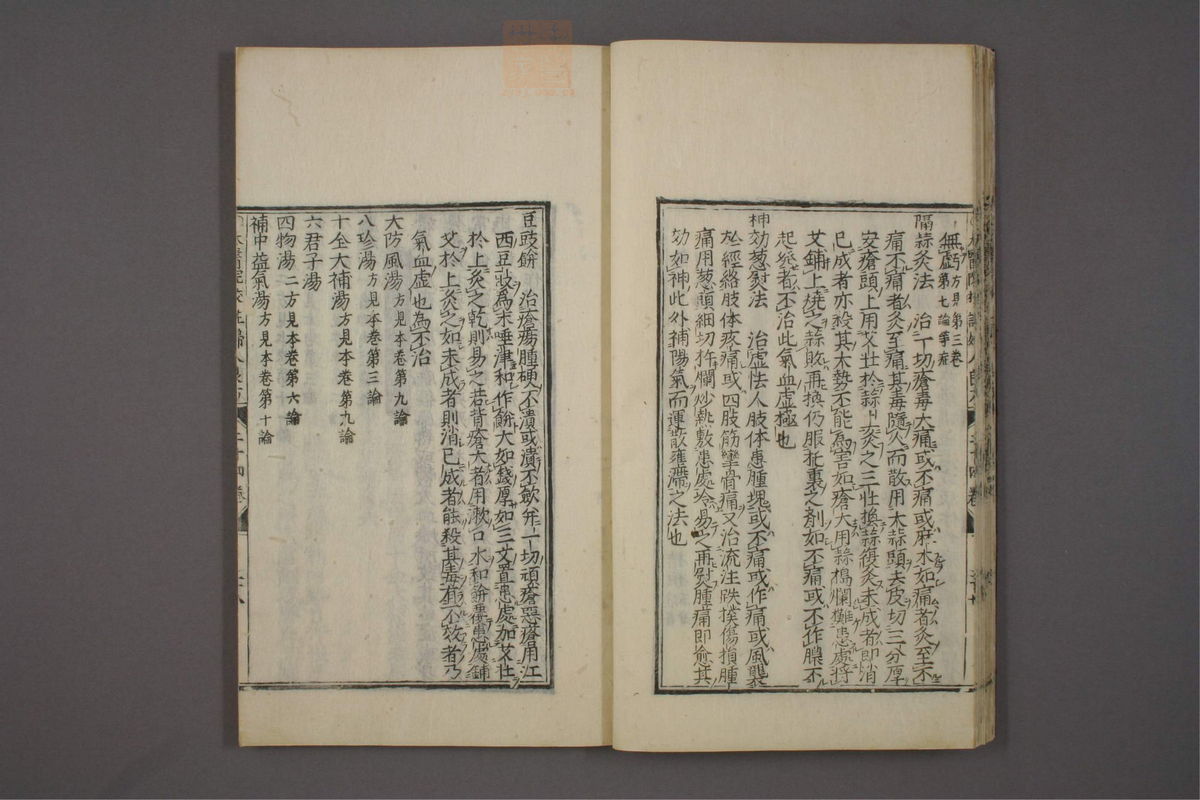 無虧 方見第三卷
虛 第七論等症
隔蒜灸法 治一切瘡毒大痛或不痛或麻木如痛者灸至不
痛不痛者灸至痛其毒隨火而散用大蒜頭去皮切三分厚
安瘡頭上用艾壯於蒜上灸之三壯換蒜復灸未成者即消
已成者亦殺其大勢不能為害如瘡大用蒜搗爛攤患處將
艾鋪上燒之蒜敗再換仍服托裏之劑如不痛或不作膿不
起發者不治此氣血虛極也
神効葱熨法 治虛怯人肢体患腫塊或不痛或作痛或風襲
於經絡肢体疼痛或四肢筋攣骨痛又治流注跌撲傷損腫
痛用葱頭細切杵爛炒熱敷患處冷易之再熨腫痛即愈其
効如神此外補陽氣而運散壅滯之法也
豆豉餅 治瘡瘍腫硬不潰或潰不歛并一切頑瘡惡瘡用江
西豆豉為末唾津和作餅大如錢厚如三文置患處加艾壯
於上灸之乾則易之若背瘡大者用漱口水和餅覆患處鋪
艾於上灸之如未成者則消已成者能殺其毒有不效者乃
氣血虛也為不治
大防風湯 方見本卷第九論
八珍湯 方見本卷第三論
十全大補湯 方見本卷第九論
六君子湯
四物湯 二方見本卷第六論
補中益氣湯 方見本卷第十論
二十四卷